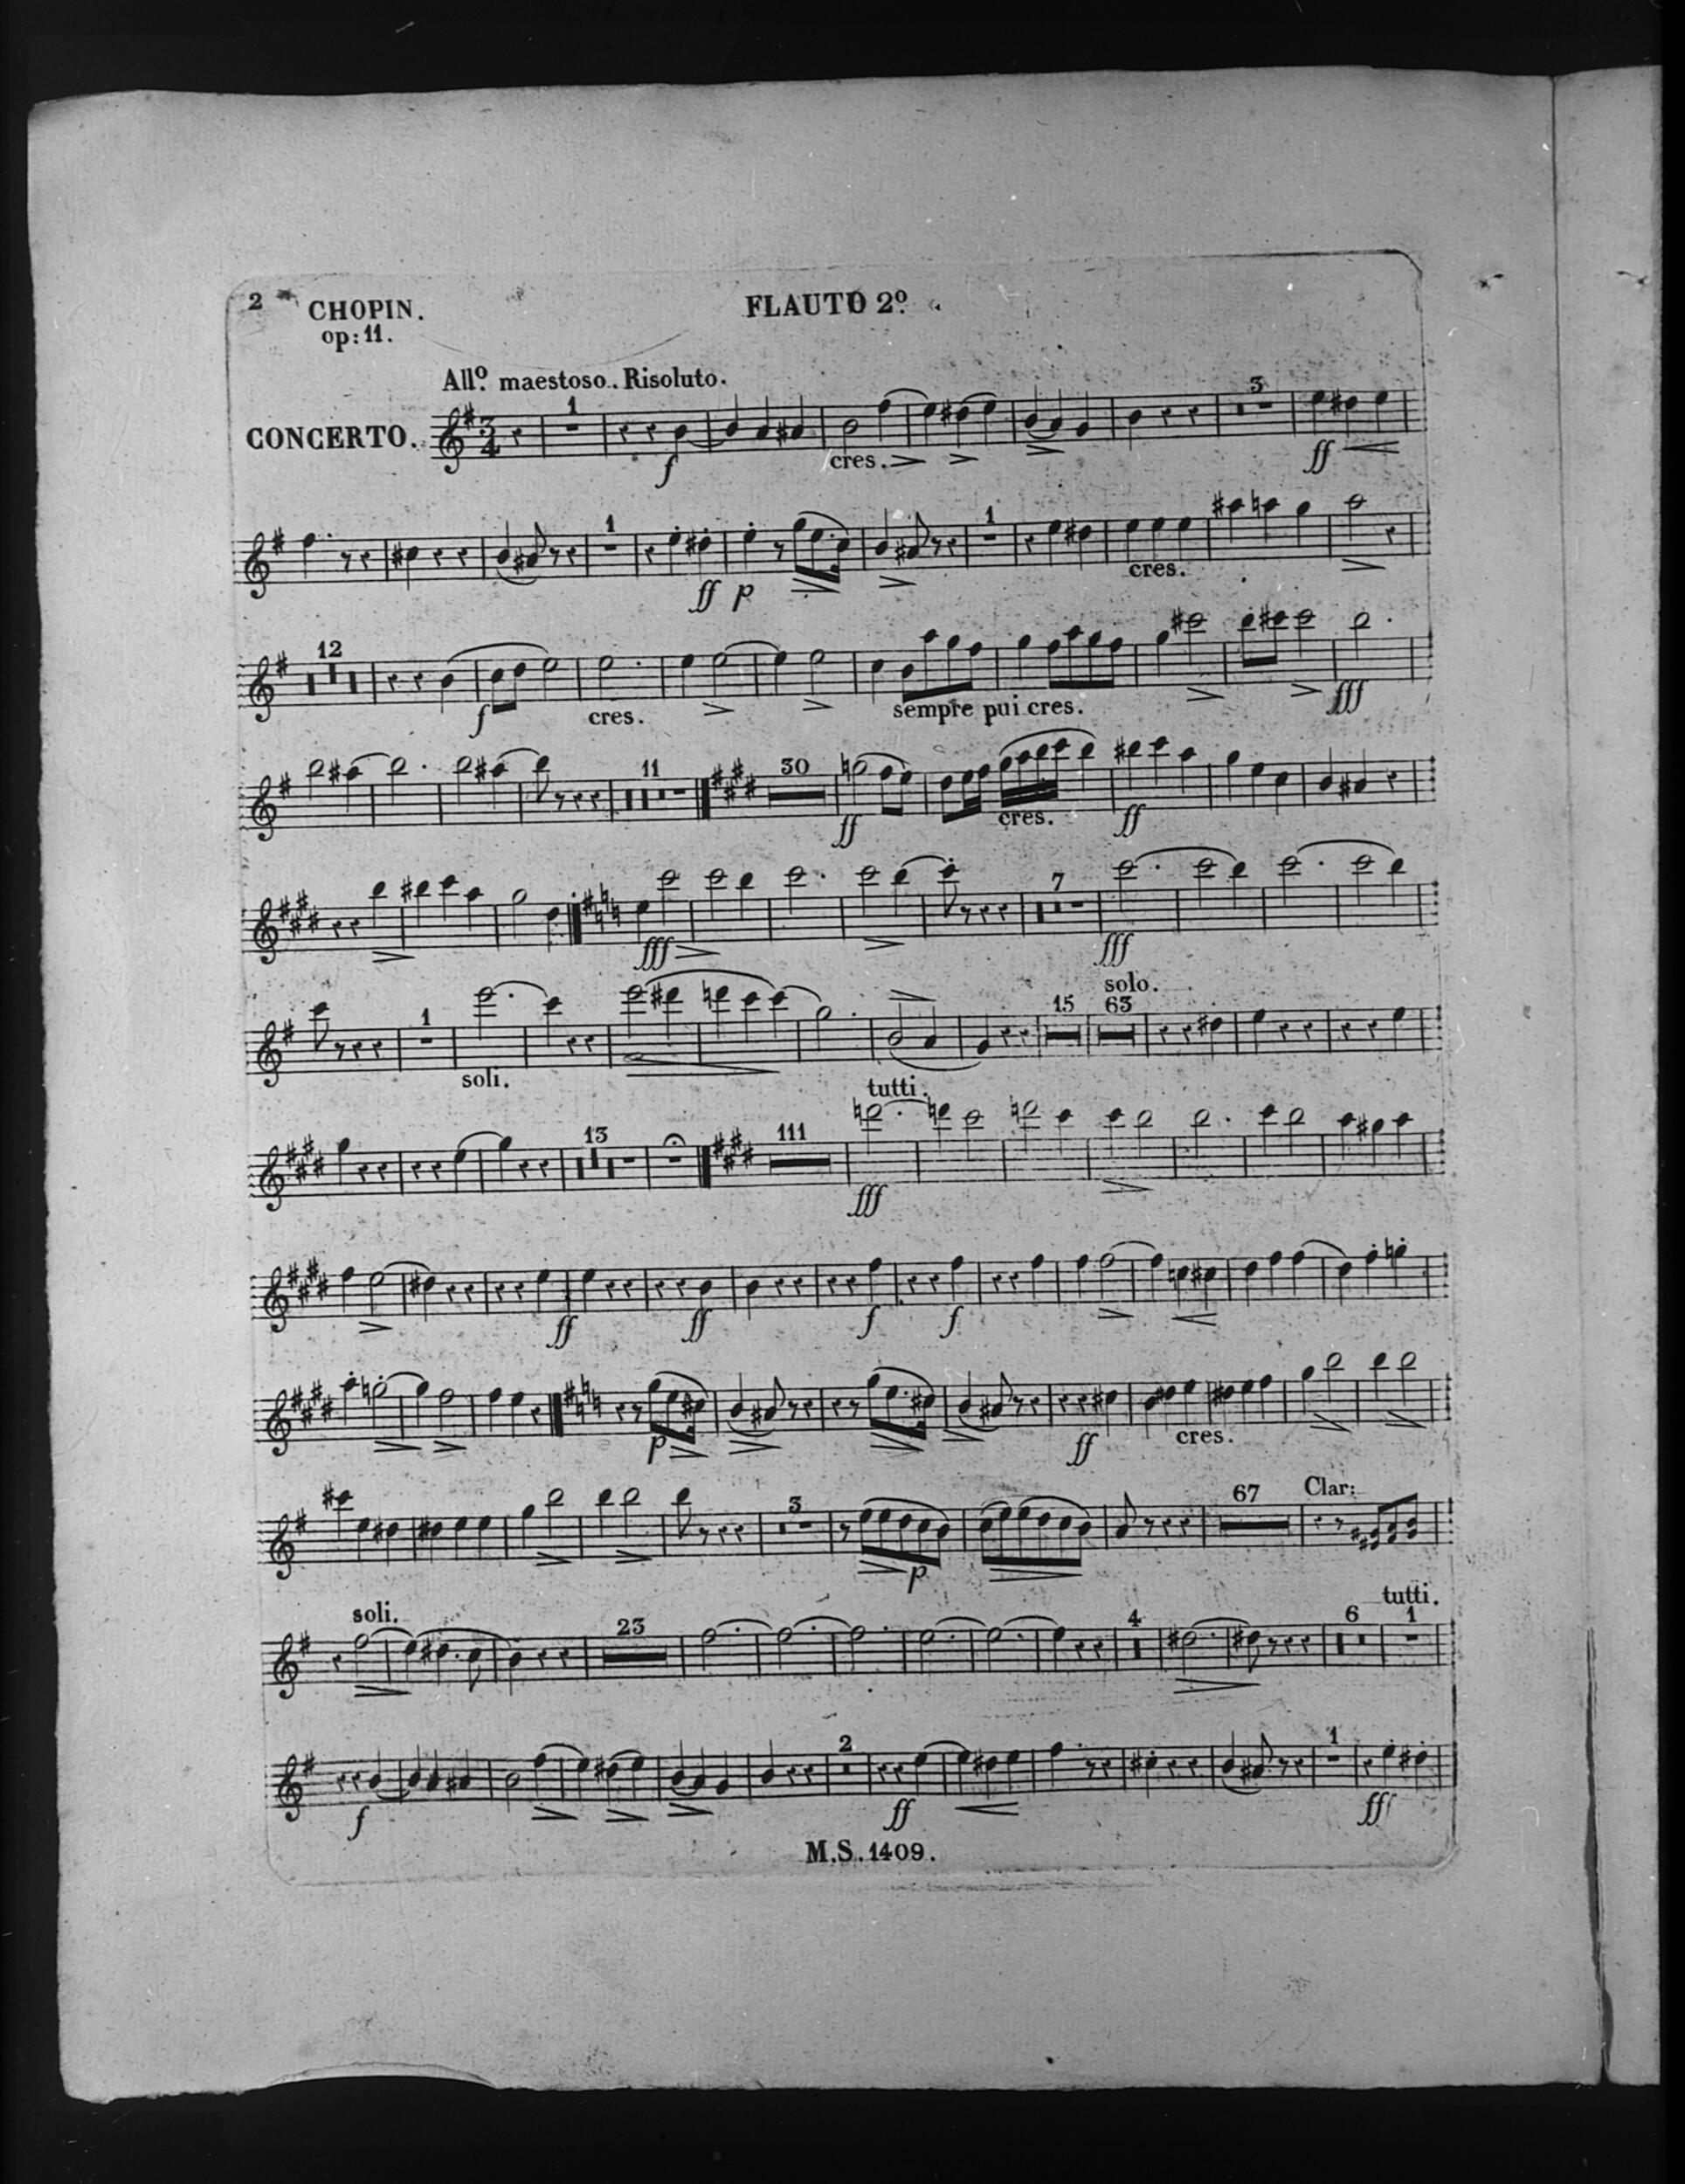 2 CHOPIN. FLAUTO 2º.
op: 11.
All.º maestoso. Risoluto.
CONCERTO. 3 4 1 3
f cres. ff
1 1
ff p cres.
12
f cres. sempre pui cres. fff
11 30
ff cres. ff
7
fff fff
solo.
1 15 63
soli.
tutti.
13 111
fff
ff ff f f
p ff cres.
3 67 Clar:
p
soli. tutti.
23 4 6 1
2 1
f ff fff
M.S. 1409.